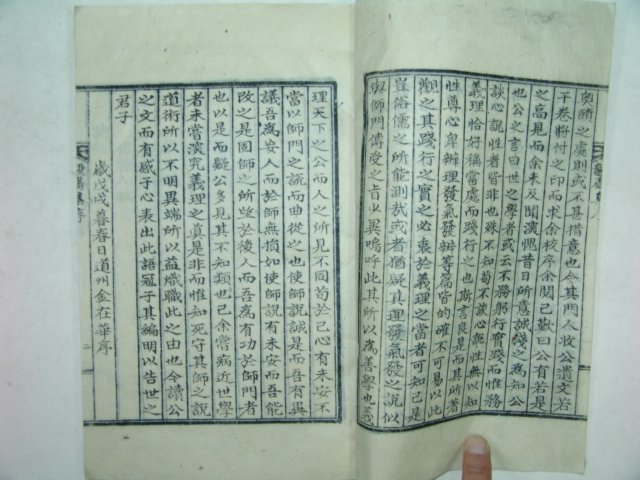 奧賾之處則或不甚措意也今其門人收公遺文若
干卷將付之印而求余校序余閱已歎曰公有若是
之高見而余未及聞深愧昔日所意誠淺之爲知公
也公之言曰世之學者或云不務躬行實踐而惟務
談心說性者皆非也殊不知苟不談心說性無以知
義理恰好稱當處而踐行之也斯言良是而其所著
性尊心卑辦理發氣發辨等篇皆的確不可易以此
觀之其踐行之實之必衷於義理之當者可知已是
豈俗儒之所能測哉或者猶疑其理發氣發之說似
與師門傳受之旨少異嗚呼此其所以爲善學也義
理天下之公而人之所見不同苟於己心有未安不
當以師門之說而曲從之也使師說誠是而吾有異
議吾爲安人而於師無損如使師說有未安而吾能
改之是固師之所望於後人而吾爲有功於師門者
也以是而疑公多見其不知類也已余嘗病近世學
者未嘗深究義理之眞是非而惟知死守其師之說
道術所以不明異端所以益熾職此之由也今讀公
之文而有感于心表出此語冠于其編明以告世之
君子
歲戊戌暮春日道州金在華序